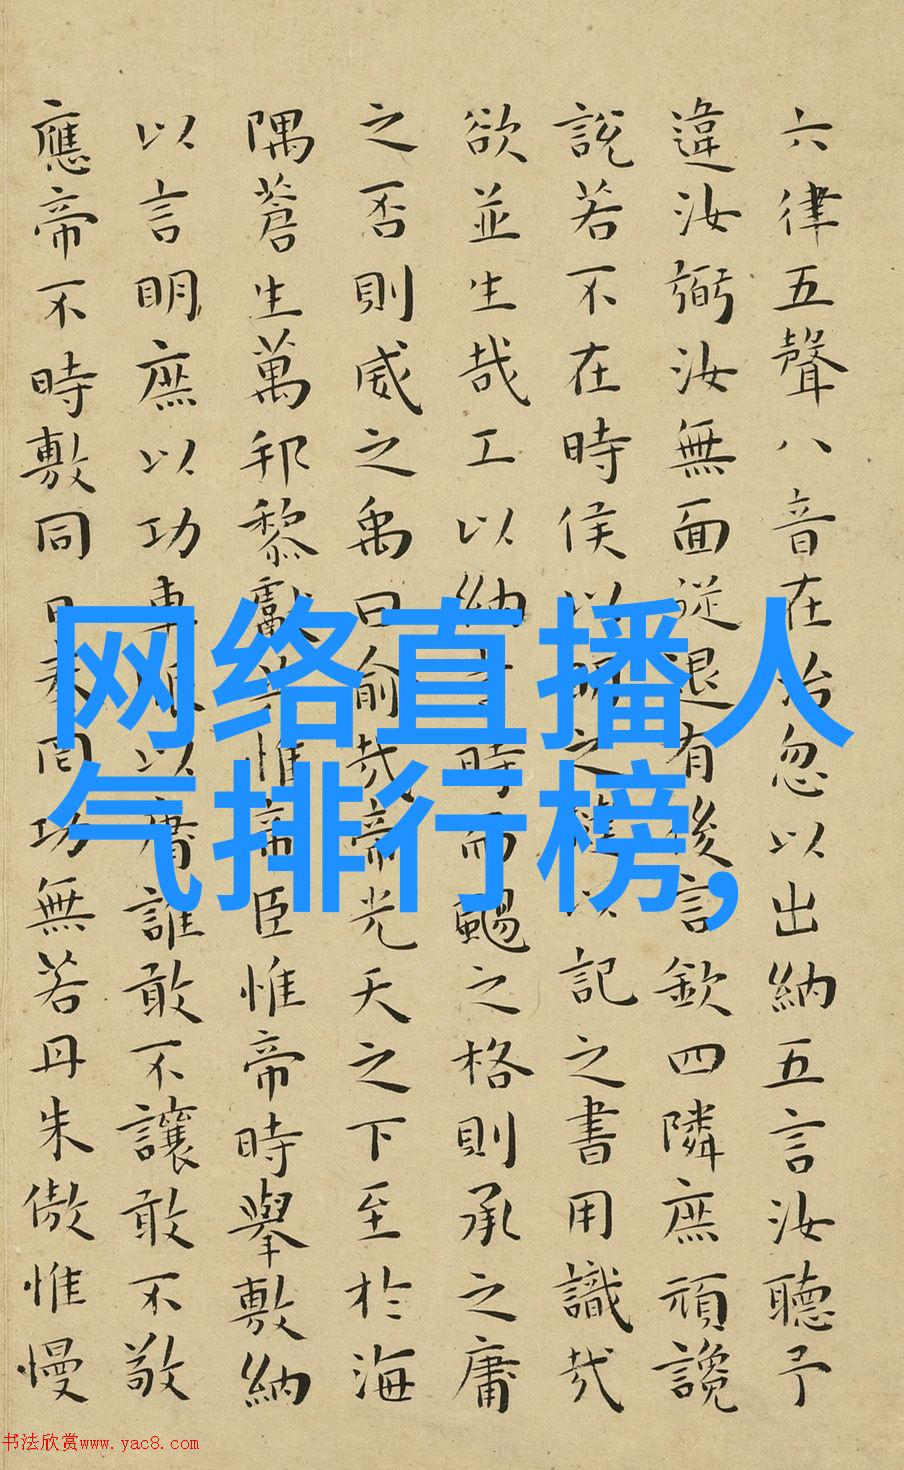 六律五聲八音在治忽以出納五言汝聽予
違汝弼汝無面從退有後言欽四隣庶頑讒
說若不在時侯以明之撻以記之書用識哉
欲並生哉工以納言時而颺之格則承之庸
之否則威之禹曰俞哉帝光天之下至於海
隅蒼生萬邦黎獻共惟帝臣惟帝時舉敷納
以言明庶以功車服以庸誰敢不讓敢不敬
應帝不時敷同日奏罔功無若丹朱傲惟慢
网络直播人
气排行榜,
书法欣赏www.yac8.com